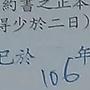 約書之正本
得少於二日）
已於106年